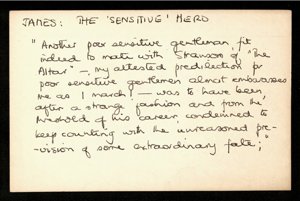 JAMES: THE 'SENSITIVE' HERO
"Another poor sensitive gentleman, fit
indeed to mate with Stransom of "The
Altar" — my attested predilection for
poor sensitive gentlemen almost embarrasses
me as I march! — was to have been,
after a strange fashion and from the
threshold of his career, condemned to
keep counting with the unreasoned pre-
-vision of some extraordinary fate;"